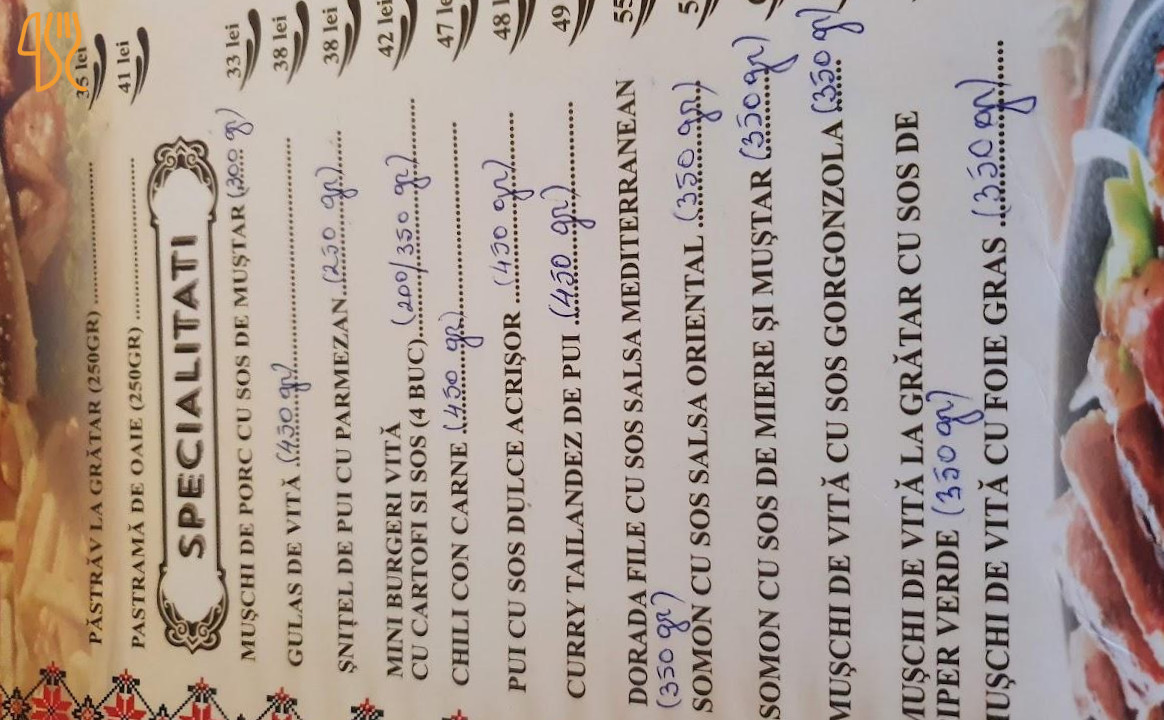 PĂSTRĂV LA GRĂTAR (250GR) .......... 35 lei
PASTRAMĂ DE OAIE (250GR) .......... 41 lei
SPECIALITATI
MUȘCHI DE PORC CU SOS DE MUȘTAR (300 gr) 33 lei
GULAS DE VITĂ (450 gr) .......... 38 lei
ȘNIȚEL DE PUI CU PARMEZAN (250 gr) .......... 38 lei
MINI BURGERI VITĂ
CU CARTOFI SI SOS (4 BUC) (200/350 gr) .......... 42 lei
CHILI CON CARNE (450 gr) .......... 47 le
PUI CU SOS DULCE ACRIȘOR (450 gr) .......... 48 l
CURRY TAILANDEZ DE PUI (450 gr) .......... 49
DORADA FILE CU SOS SALSA MEDITERRANEAN 55
(350 gr)
SOMON CU SOS SALSA ORIENTAL (350 gr)
SOMON CU SOS DE MIERE ȘI MUȘTAR (350 gr)
MUȘCHI DE VITĂ CU SOS GORGONZOLA (350 gr)
UȘCHI DE VITĂ LA GRĂTAR CU SOS DE
IPER VERDE (350 gr)
UȘCHI DE VITĂ CU FOIE GRAS (350 gr)